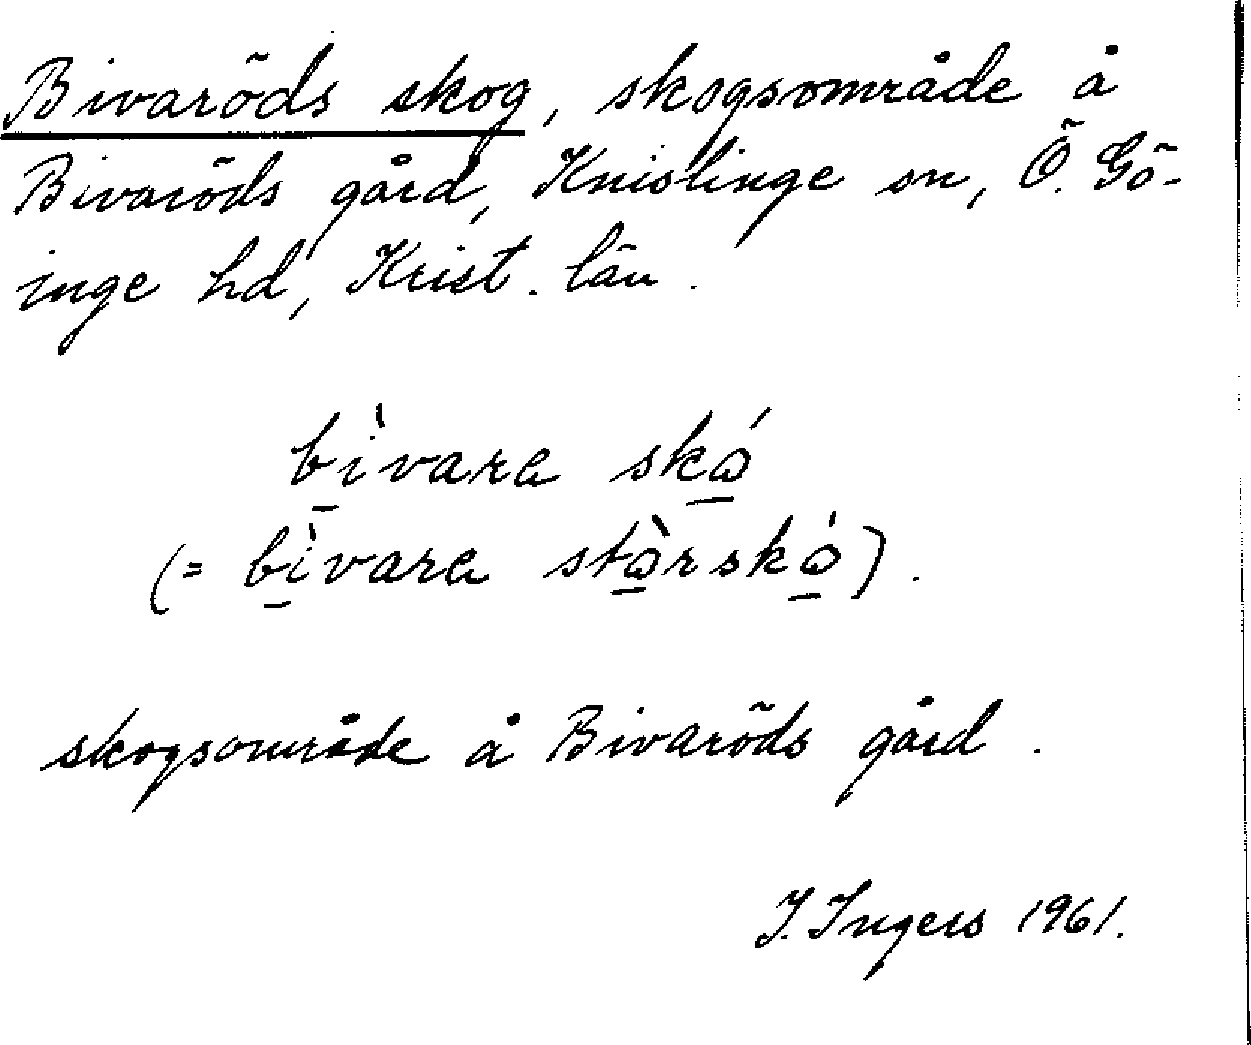 Bivaröds skog, skogsområde å
Bivaröds gård, Knislinge sn, Ö. Gö-
inge hd, Krist. län.
bì̠vara skɷ̠́
(= bì̠vara stɷ̠̀rskɷ̠́).
skogsområde å Bivaröds gård.
I. Ingers 1961.